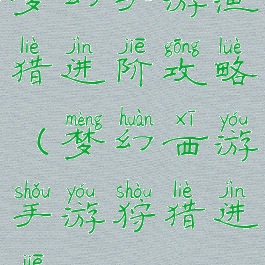 liè jìn jiē gōng lüè
猎进阶攻略
mèng huàn xī yóu
（梦幻西游
shǒu yóu shòu liè jìn
手游狩猎进
jiē